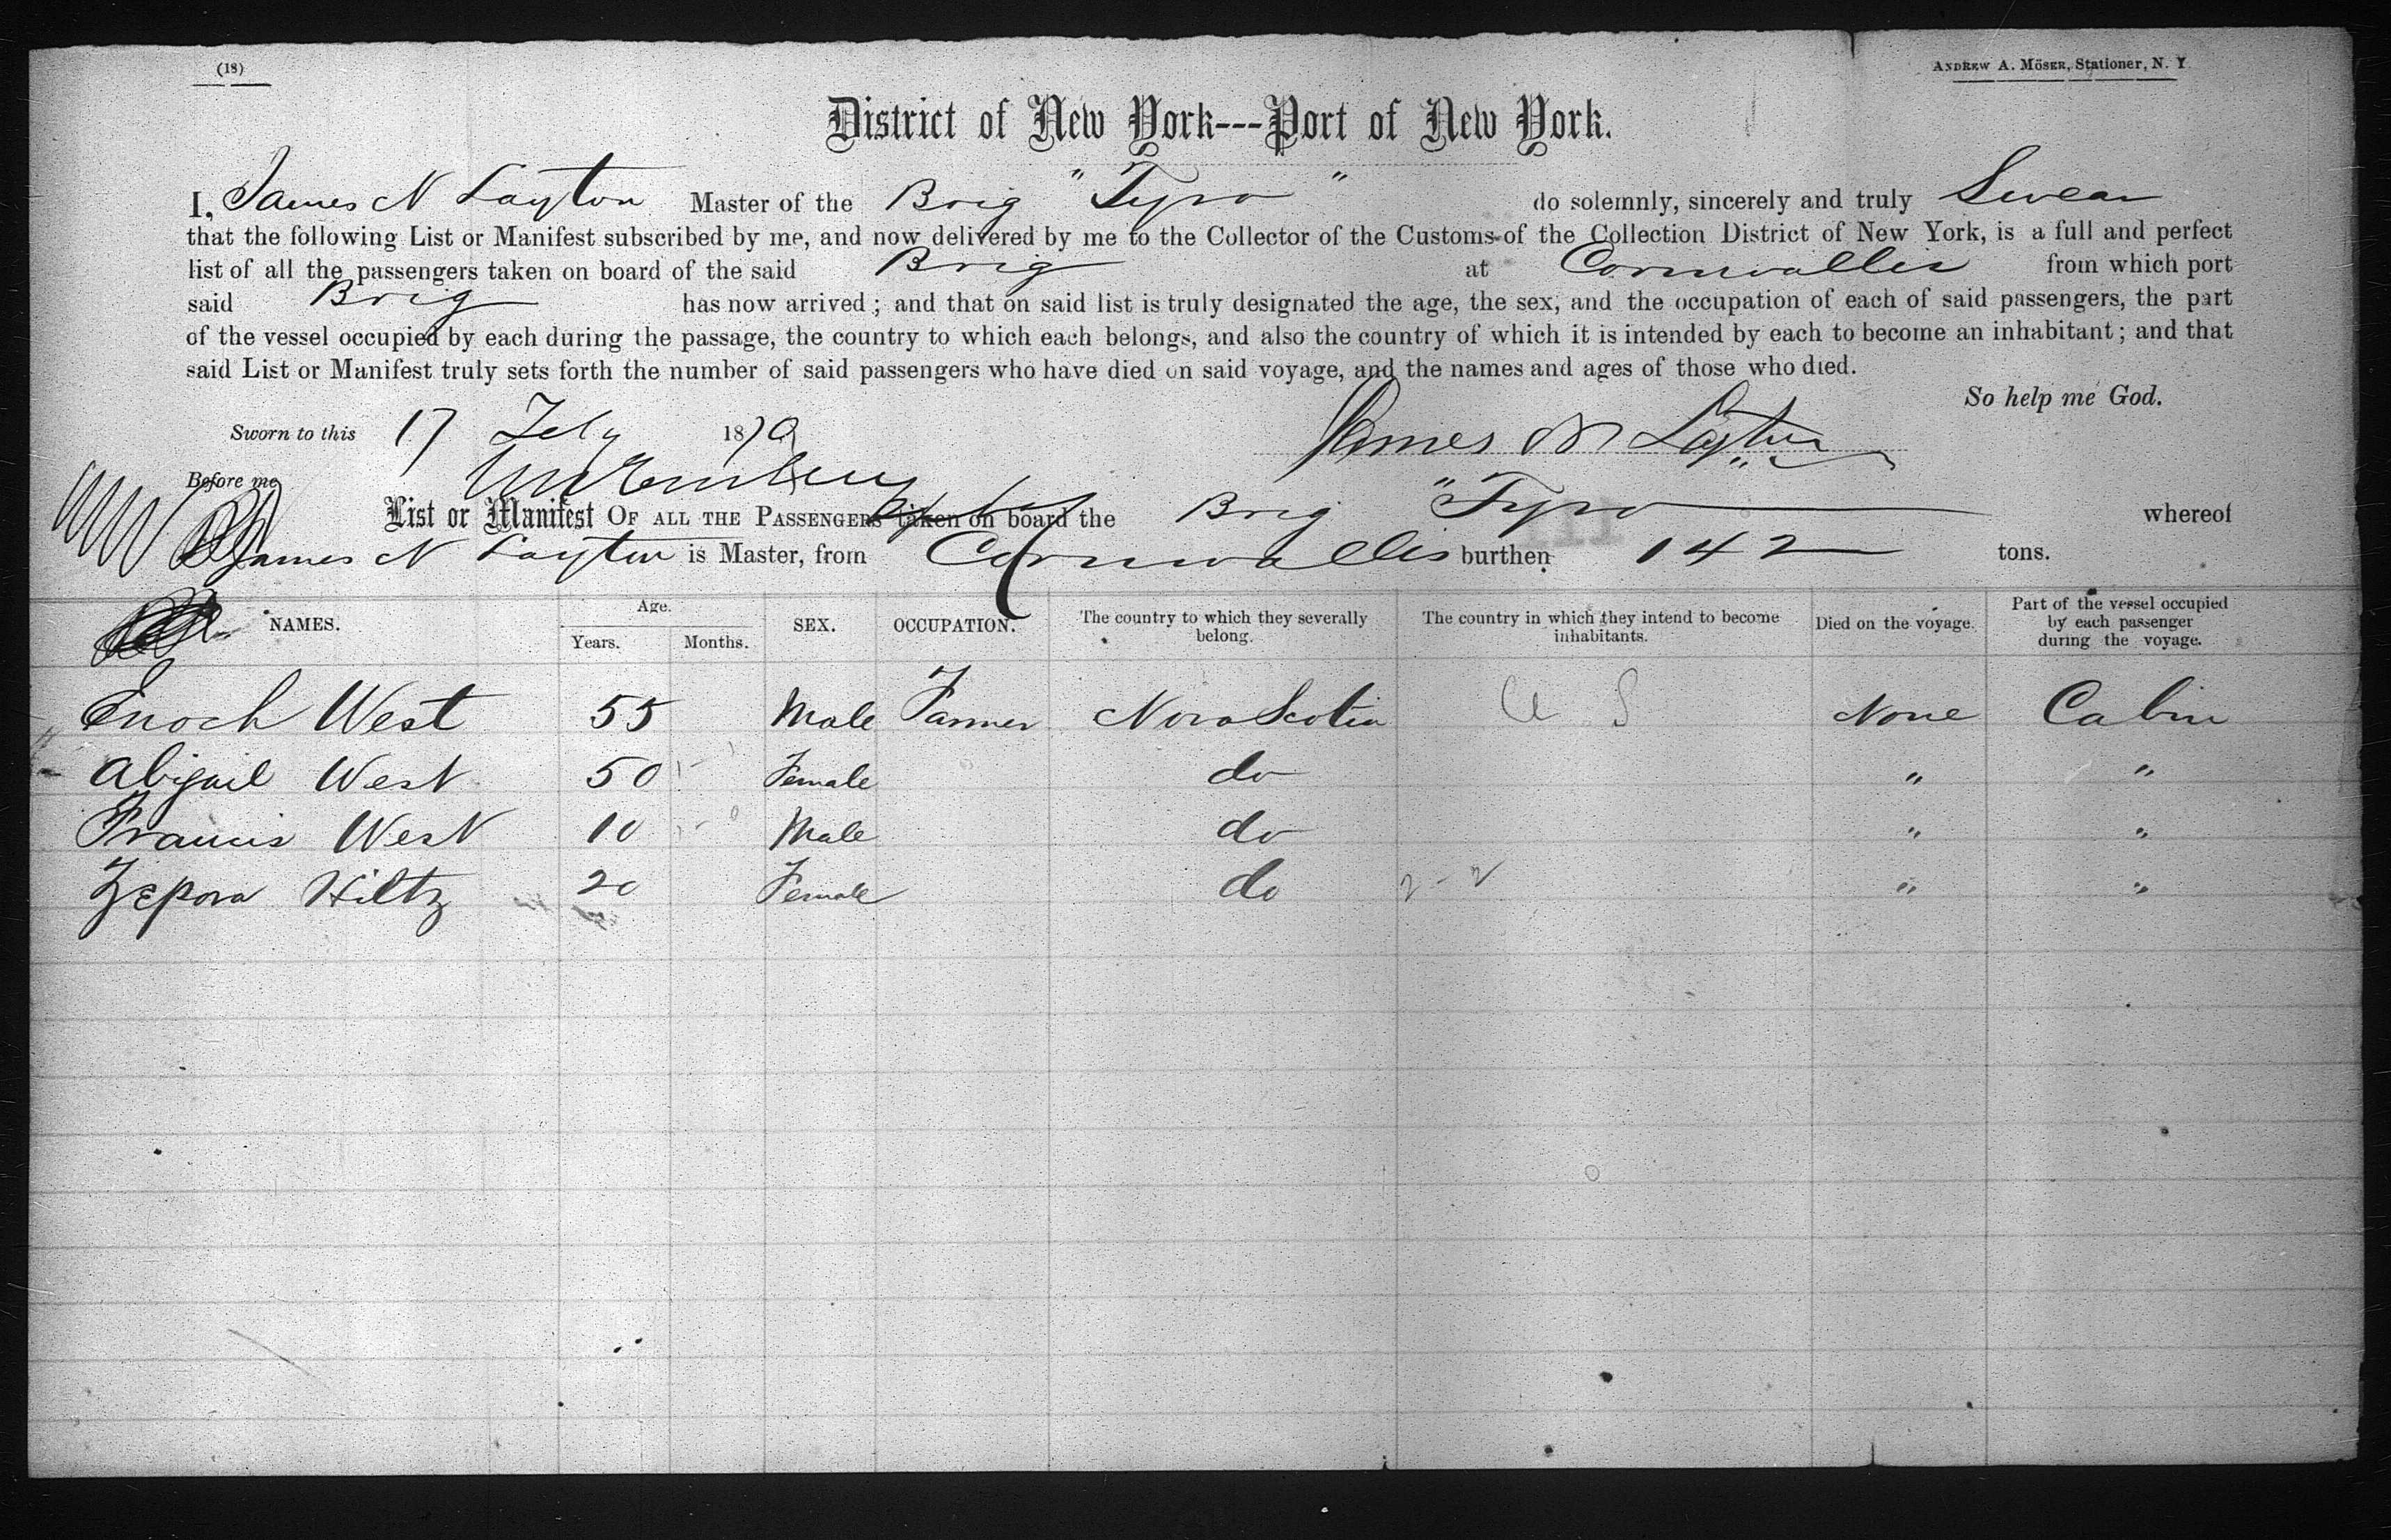 (18)
ANDREW A. MÖSER, Stationer, N. Y.
District of New York---Port of New York.
I, James N Layton Master of the Brig "Tyro" do solemnly, sincerely and truly Swear
that the following List or Manifest subscribed by me, and now delivered by me to the Collector of the Customs of the Collection District of New York, is a full and perfect
list of all the passengers taken on board of the said Brig at Cornwallis from which port
said Brig has now arrived; and that on said list is truly designated the age, the sex, and the occupation of each of said passengers, the part
of the vessel occupied by each during the passage, the country to which each belongs, and also the country of which it is intended by each to become an inhabitant; and that
said List or Manifest truly sets forth the number of said passengers who have died on said voyage, and the names and ages of those who died.
So help me God.
Sworn to this 17 1870 James N Layton
Before me
List or Manifest OF ALL THE PASSENGERS taken on board the Brig "Tyro whereof
James N Layton is Master, from Cornwallis burthen 142 tons.
NAMES. Age. Years. Months. SEX. OCCUPATION. The country to which they severally belong. The country in which they intend to become inhabitants. Died on the voyage. Part of the vessel occupied by each passenger during the voyage.
Enoch West 55 Male Farmer Nova Scotia U S None Cabin
Abigail West 50 Female do " "
Francis West 10 Male do " "
Zepora Hiltz 20 Female do " "